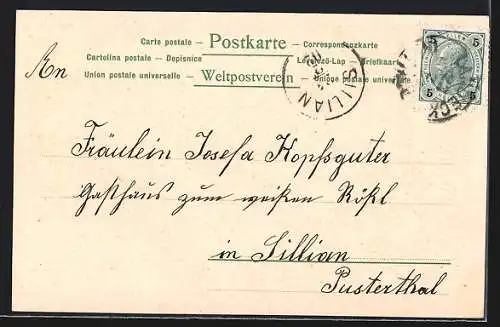 Carte postale — Postkarte — Correspondenzkarte
Cartolina postale — Dopisnice Levelező-Lap — Briefkaart
Union postale universelle — Weltpostverein — Unione postale universale
SILLIAN
5 5
5 5
An
Fräulein Josefa Kopfsguter
Gasthaus zum weißen Rößl
in Sillian
Pusterthal